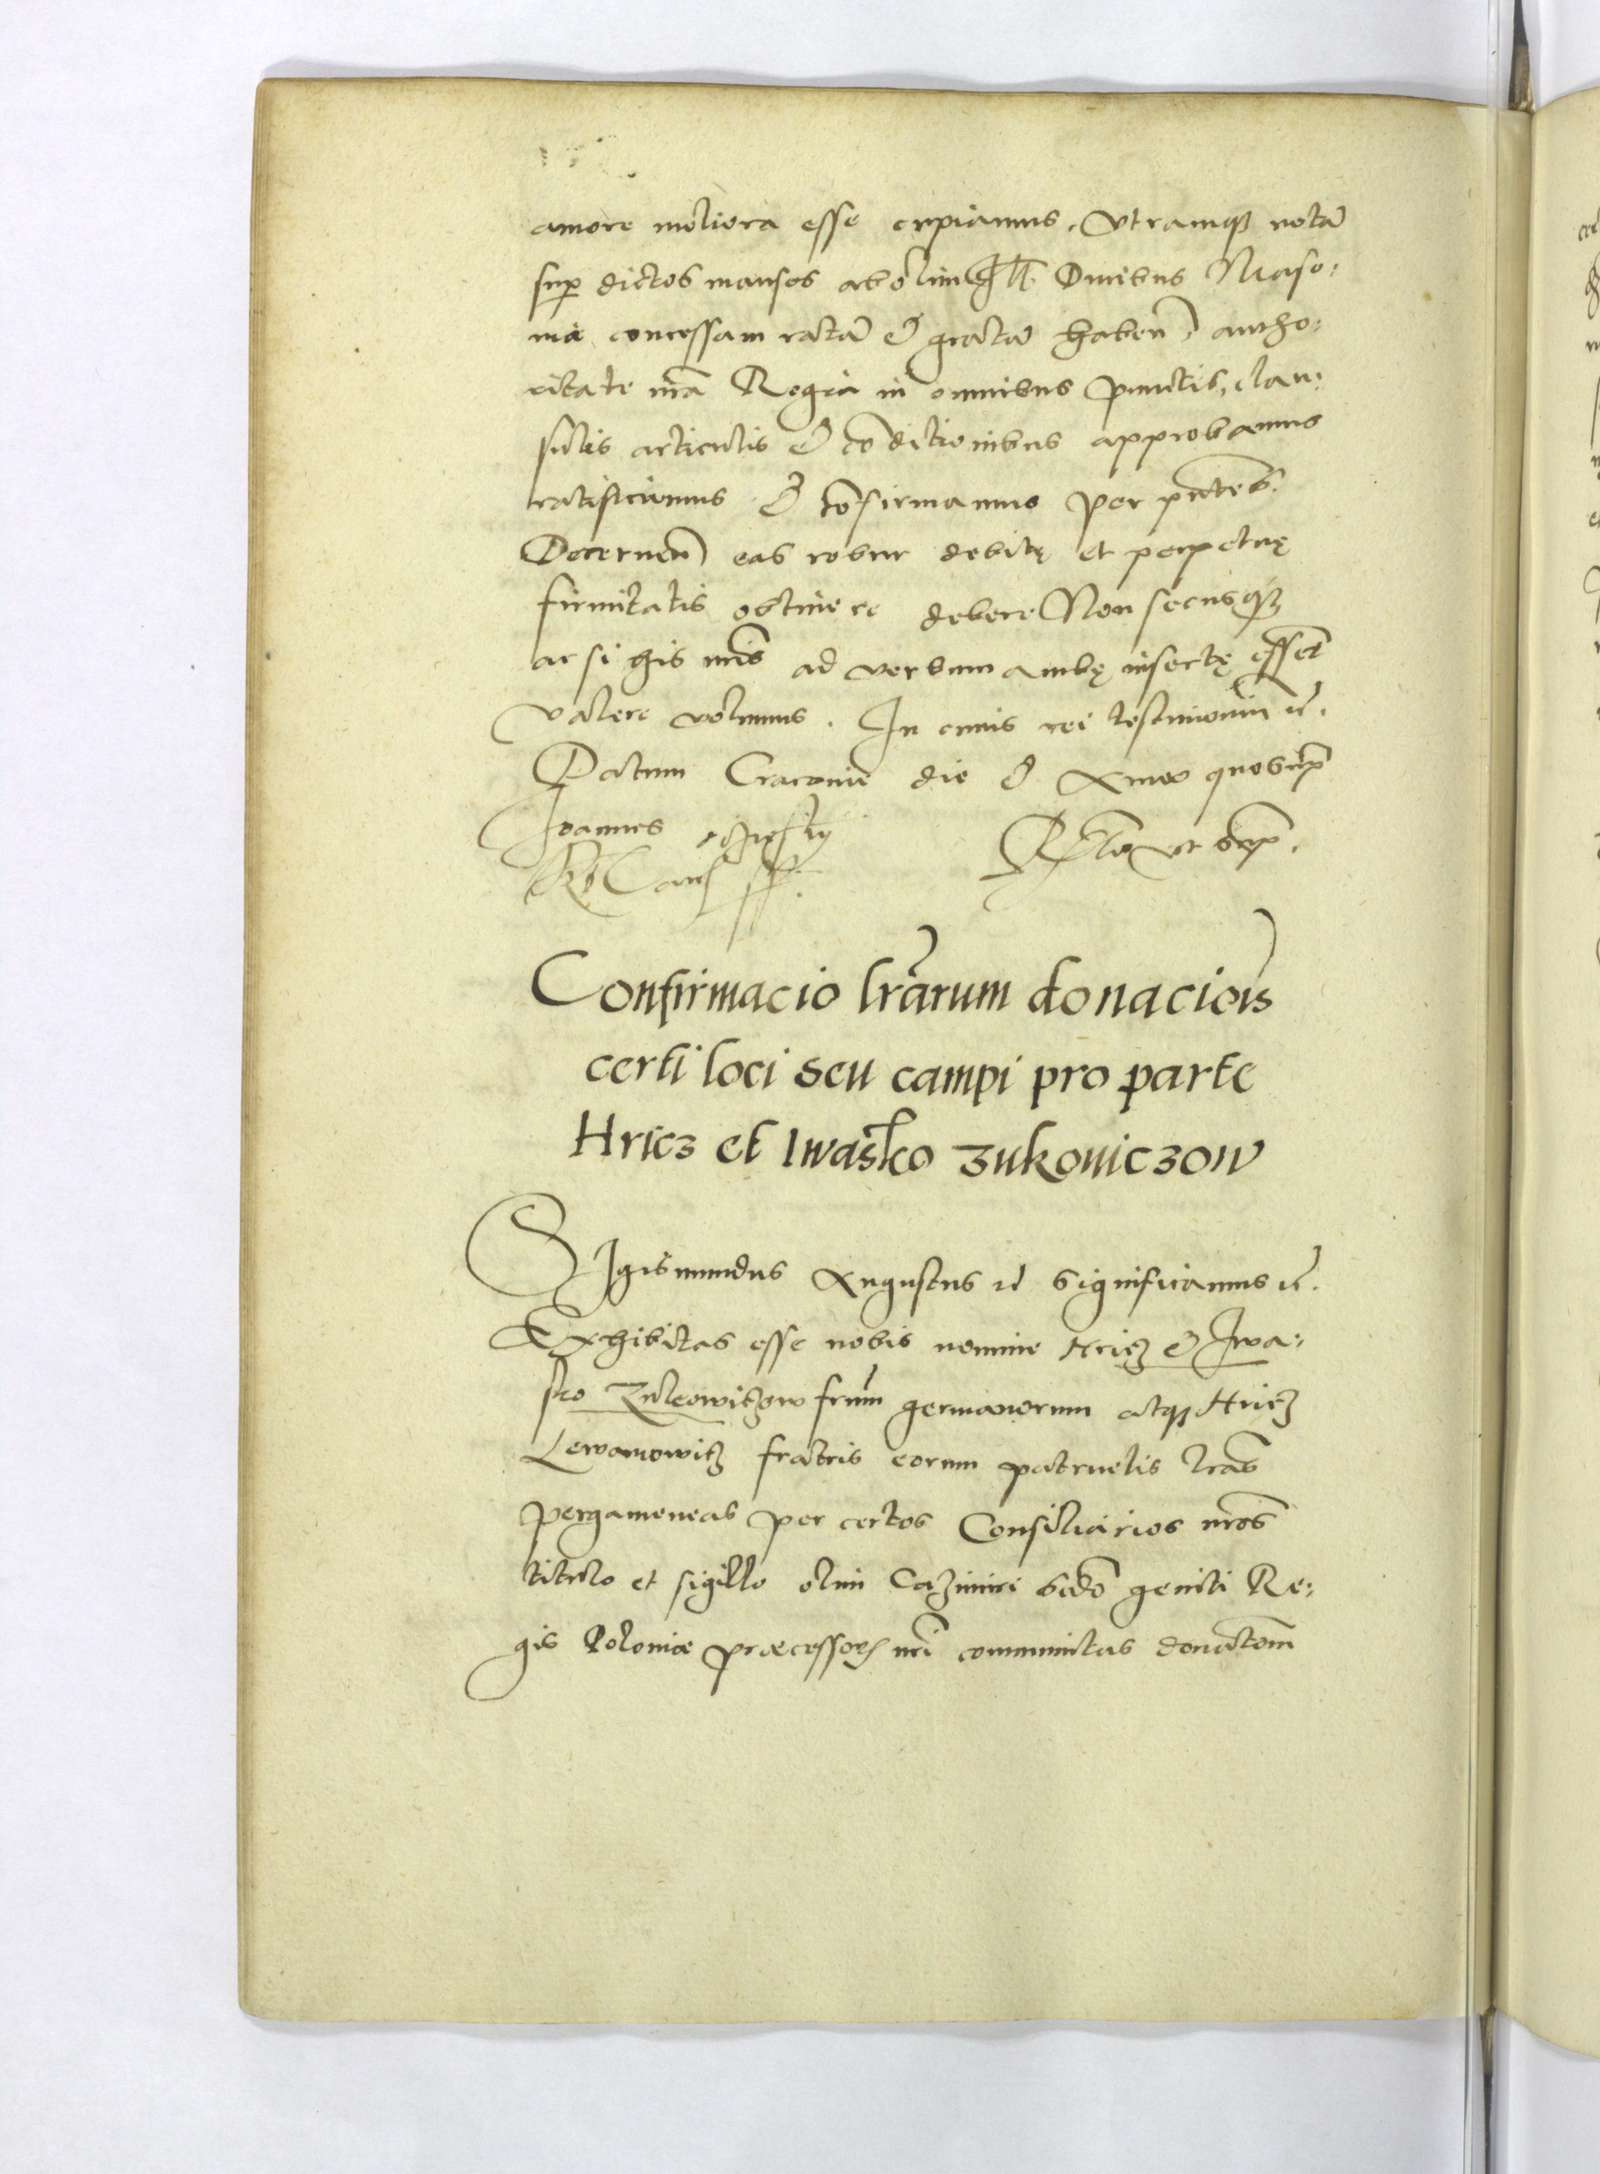 amore meliora esse cupiamus, Utramq₃ notã
sup dictos mansos ab olim Ill. Ducibus Maso:
uiæ concessam ratã & gratã haben̄, autho:
ritate nr̃a Regia in omnibus punctis, clau:
sulis articulis & cõditionibus approbamus
ratificamus & cõfirmamus per pñtes.
Decernen̄ eas robur debitę et perpetuę
firmitatis obtinere debere Non secus q̃₃
ac si his nr̃is ad verbum ambę insertę essẽt
Valere volumus. In cuius rei testimoniũ &c.
Datum Cracouie die & Anno quo supͬ
Joannes
R P Canc̃ ss.
Rel̃o ut supͬ.
Confirmacio lr̃arum donaciois
certi loci seu campi pro parte
Hricz et Iwasko Zukouiczow
Sigismundus Augustus &c Significamus &c.
Exhibitas esse nobis nomine Hricz & Iwa:
sko Zukowiczow frũm germanorum atq₃ Hricz
Lewanowicz fratris eorum patruelis lr̃as
pergameneas per certos Consiliarios nr̃os
titulo et sigillo olim Cazimiri scdo geniti Re:
gis Poloniæ præcessoris nr̃i communitas donatõem